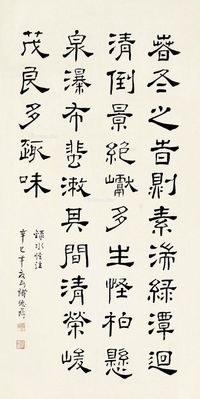 春冬之旹則素湍綠潭迴
清倒景絕巘多生怪柏懸
泉瀑布蜚漱其間清榮峻
茂良多趣味
水經注
辛巳年